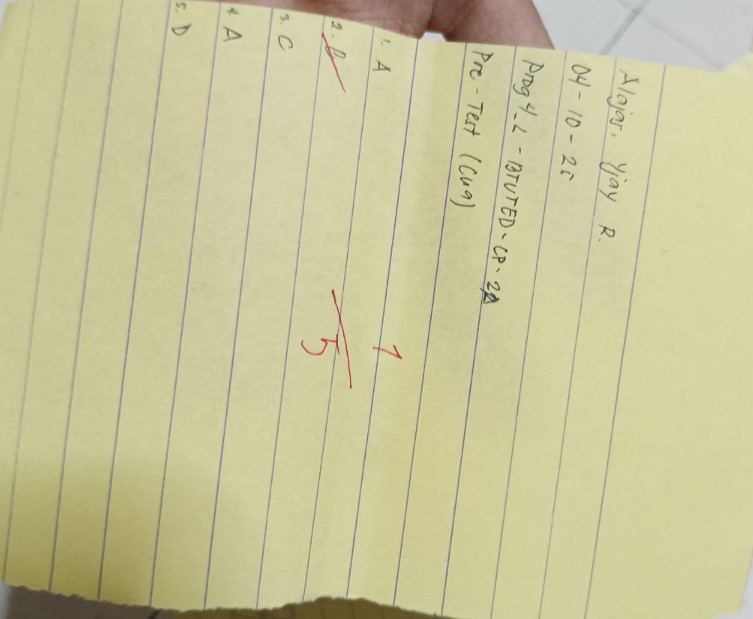 Alajar, Yjay R.
04-10-25
Prog 4_L - BTVTED - CP - 2A
Pre-Test (Cu9)
1. A
1
2. B
5
3. C
4. A
5. D